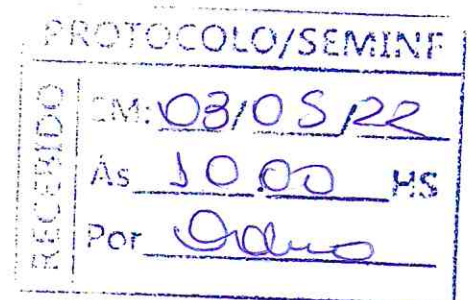 PROTOCOLO/SEMINF
RECEBIDO
EM: 03/05/22
Às 10:00 HS
Por